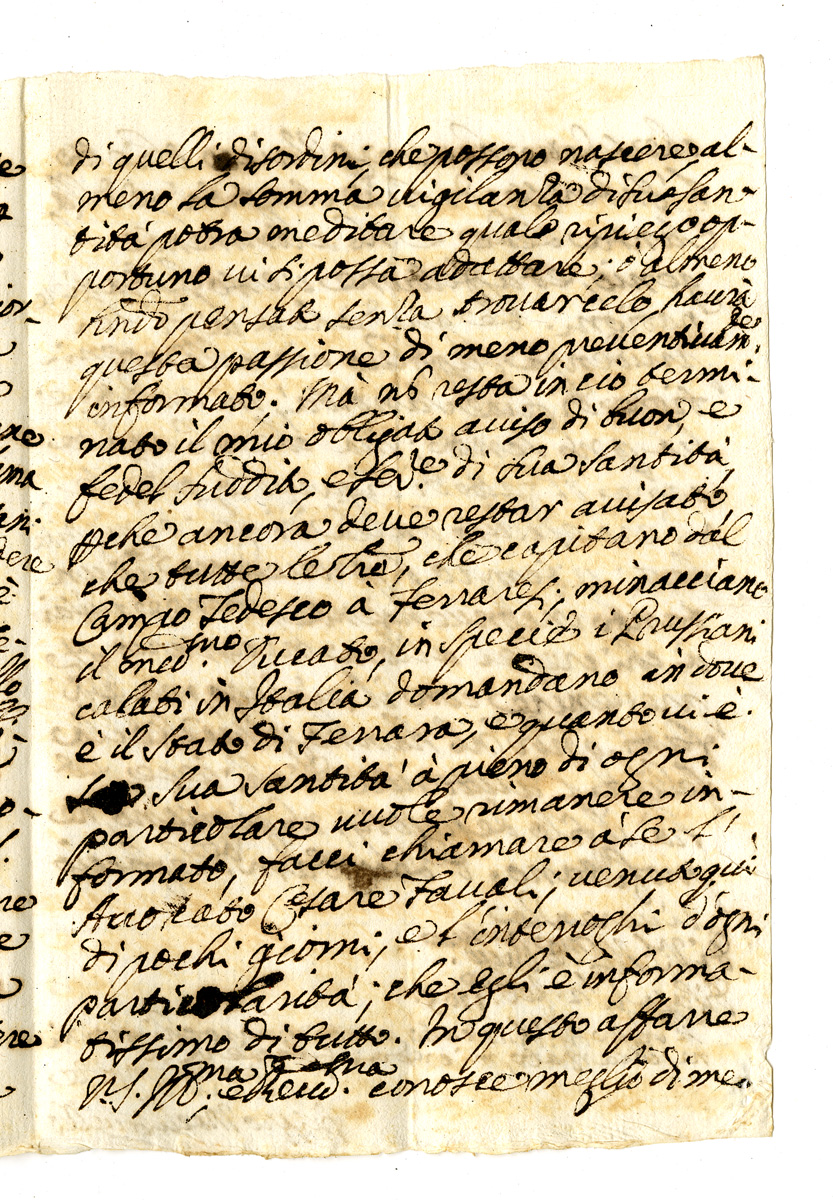 di quelli disordini, che possono nascere, al-
meno la somma vigilanza di sua san-
tità potrà meditare quale ripiego op-
portuno vi si possa adattare; ò almeno
pensat senza trovarcelo, havrà
questa passione di meno preventivam.te
informato. Mà nõ resta in ciò termi-
nato il mio obligat aviso di buon, e
fedel suddit, e ser.e di sua santità,
pche ancora deve restar avisato,
che tutte le tre, che capitano dal
Campo Tedesco à Ferraresi, minacciano
il med.smo Ducato, in specie i Prussiani
calati in Italia domandano in dove
è il stato di Ferrara, e quanto vi è.
sua santità à pieno di ogni
particolare vuole rimanere in-
formato, facci chiamare à se l'
Avvocato Cesare Favali; venut quì
di pochi giorni, e l'interroghi d'ogni
particolarità; che egli è informa-
tissimo di tutto. In questo affare
V.S. Ill.ma, e Rev.ma conosce meglio di me.